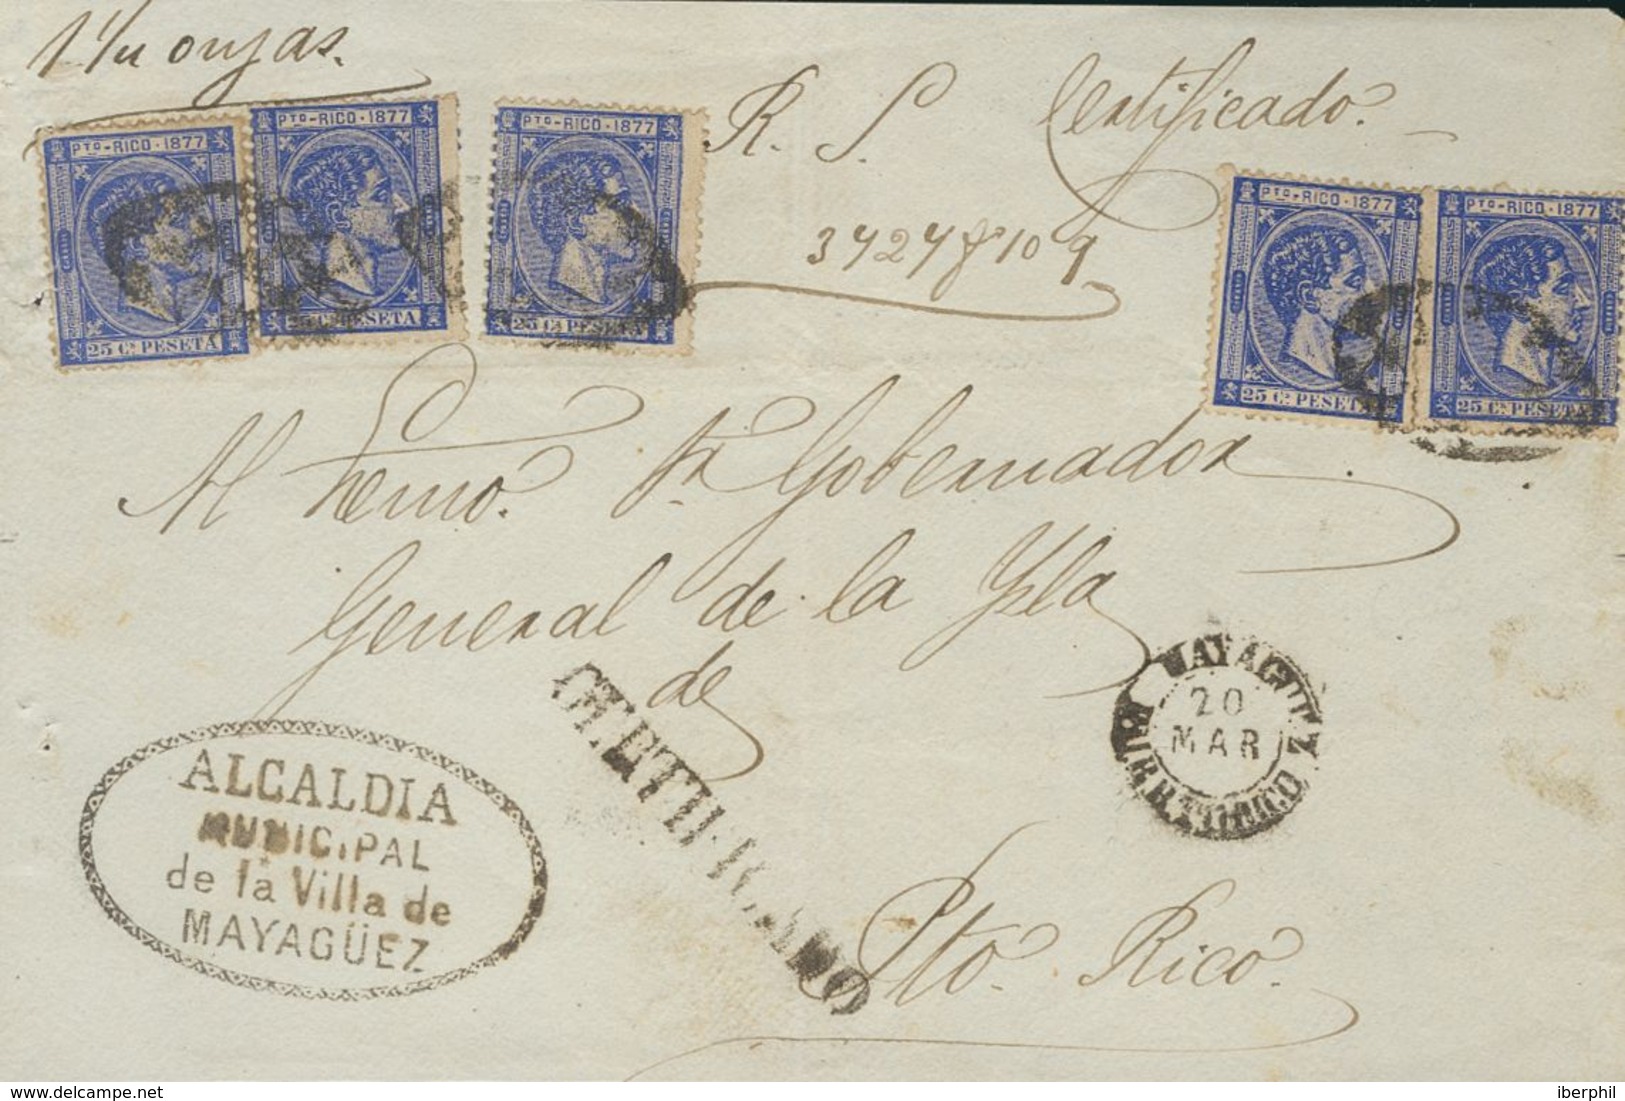 onzas.
PTO-RICO·1877
25 Cs PESETA
PTO-RICO·1877
25 Cs PESETA
PTO-RICO·1877
25 Cs PESETA
R. S. Certificado.
PTO-RICO·1877
25 Cs PESETA
PTO-RICO·1877
25 Cs PESETA
Al Exmo. Sr Gobernador
General de la Ysla
de
Pto Rico.
CERTIFICADO
MAYAGUEZ
20
MAR
PUERTO-RICO
ALCALDIA
MUNICIPAL
de la Villa de
MAYAGÜEZ
iberphil